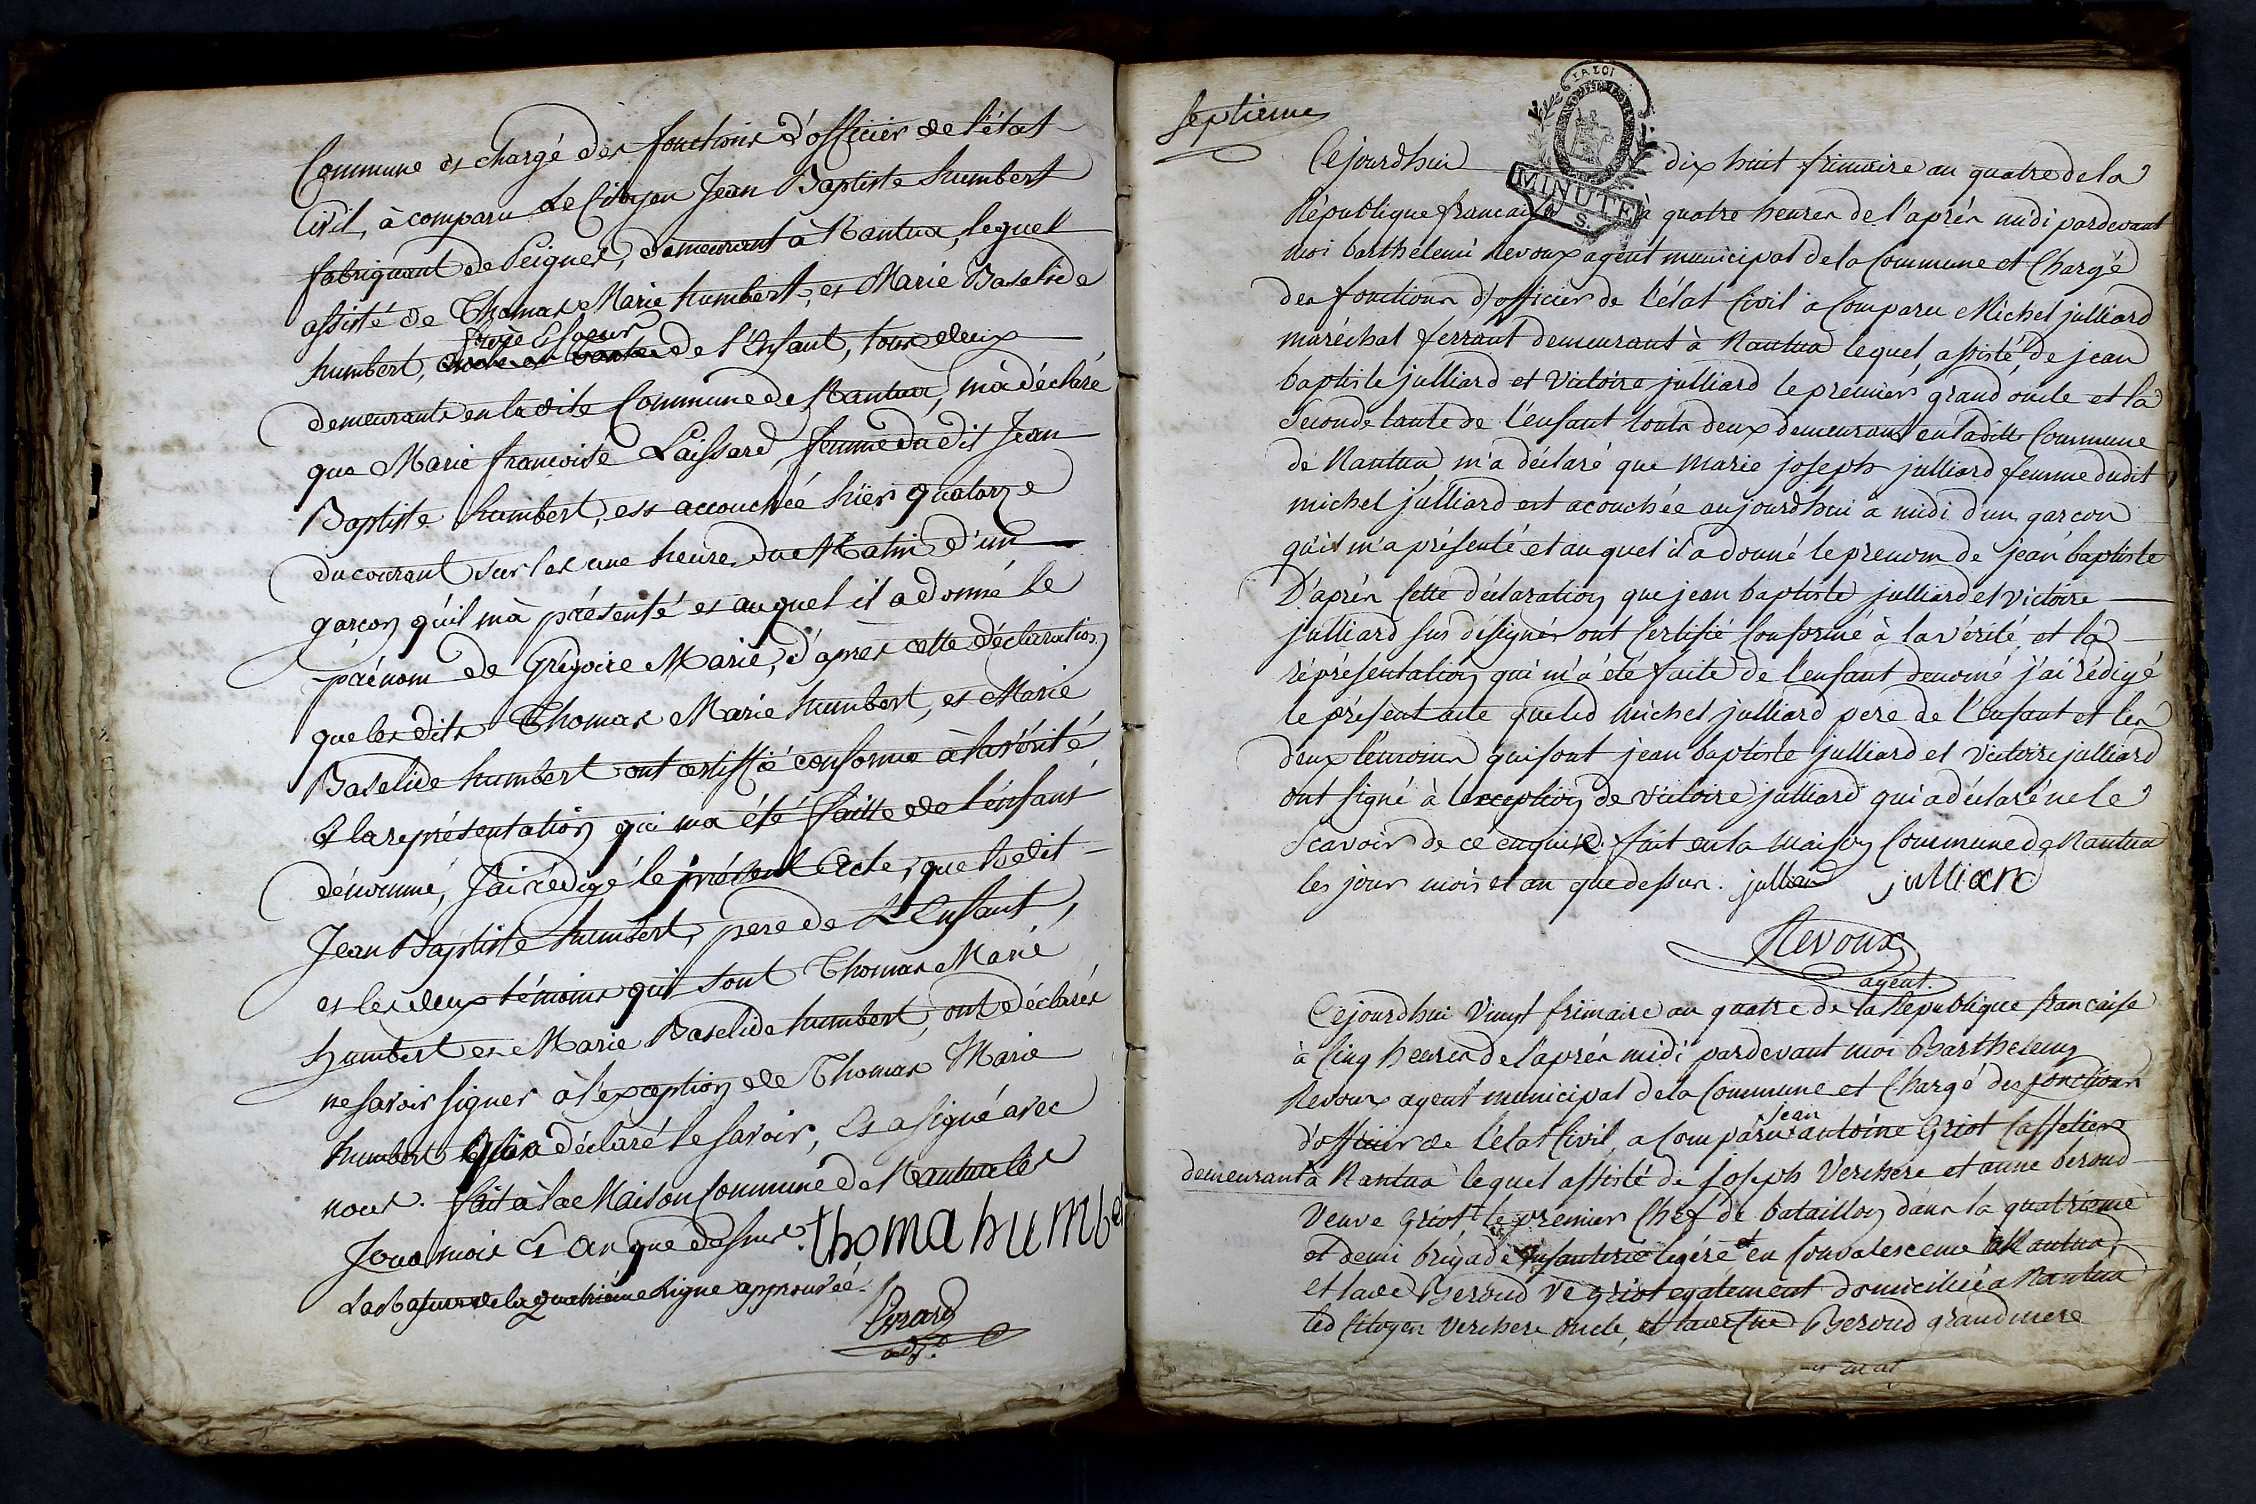 Commune et chargé des fonctions d'officier de l'état
Civil, à comparu Le Citoyen Jean Baptiste humbert
fabriquant de Peignes, demeurant à Nantua, lequel
assisté de Thomas Marie humbert, et Marie Baselide
frère et soeur
humbert, de l'Enfant, tous deux
demeurants en ladite Commune de Nantua, m'a déclaré
que Marie francoise Laissard, femme du dit Jean
Baptiste humbert, est accouchée hïer quatorze
du courant sur les une heure du Matin d'un
garçon qu'il m'à présenté et auquel il a donné le
prénom de Grégoire Marie, d'apres cette déclaration
que les dits Thomas Marie humbert, et Marie
Baselide humbert ont certiffié conforme à la vérité,
& la représentation qui m'a été faitte de l'enfant
dénommé, J'ai rédigé le présent Acte, que le dit
Jean Baptiste humbert, pere de L'Enfant,
et les deux témoins qui sont Thomas Marie
humbert et Marie Baselide humbert, ont déclarés
ne savoir signer à l'exception de Thomas Marie
humbert qui a déclaré le savoir, Et a signé avec
nous. fait à la Maison Commune de Nantua les
Jour mois Et An que dessus. thoma humbe
de la quatriéme Ligne approuvée.
adj.t
septieme
IATOI
MINUTE
S.
Cejourdhui dix huit frimaire an quatre de la
République francaise à quatre heures de l'après midi pardevant
moi barthelemi Revoux agent municipal de la Commune et Chargé
des fonctions d'officier de l'état Civil a Comparu Michel julliard
maréchal ferrant demeurant à Nantua lequel, assisté de jean
baptiste julliard et Victoire julliard le premier grand oncle et la
Seconde tante de l'enfant touts deux demeurant en ladite Commune
de Nantua m'a déclaré que Marie joseph julliard femme dudit
michel julliard est acouchée aujourdhui a midi d'un garcon
qu'il m'a présenté et auquel il a donné le prenom de jean baptiste
D'après Cette déclaration que jean baptiste julliard et Victoire
julliard sus désignés ont Certifié Conforme à la vérité, et la
répresentation qui m'a été faite de l'enfant denomé j'ai rédigé
le présent acte que led Michel julliard pere de L'enfant et les
deux temoins qui sont jean baptiste julliard et Victoire julliard
ont signé à l'exception de Victoire julliard qui a déclaré ne le
Scavoir de ce enquise. fait en la maison Commune de Nantua
les jour mois et an que dessus. julliard julliard
Revoux
agent.
Cejourdhui Vingt frimaire an quatre de la République francaise
à Cinq heures de l'après midi pardevant moi Barthelemy
Revoux agent municipal de la Commune et Chargé des fonctions
jean
d'officier de l'état Civil, a Comparu antoine Griot Caffetier
demeurant à Nantua lequel assisté de joseph Verchere et anne beroud
Veuve Griot le premier Chef de bataillon dans la quatrieme
et demi brigade infanterie légére et en Convalescence à Nantua
et lade Beroud Ve griot egalement domiciliée a Nantua
led Citoyen Verchere oncle, et Beroud grandmere